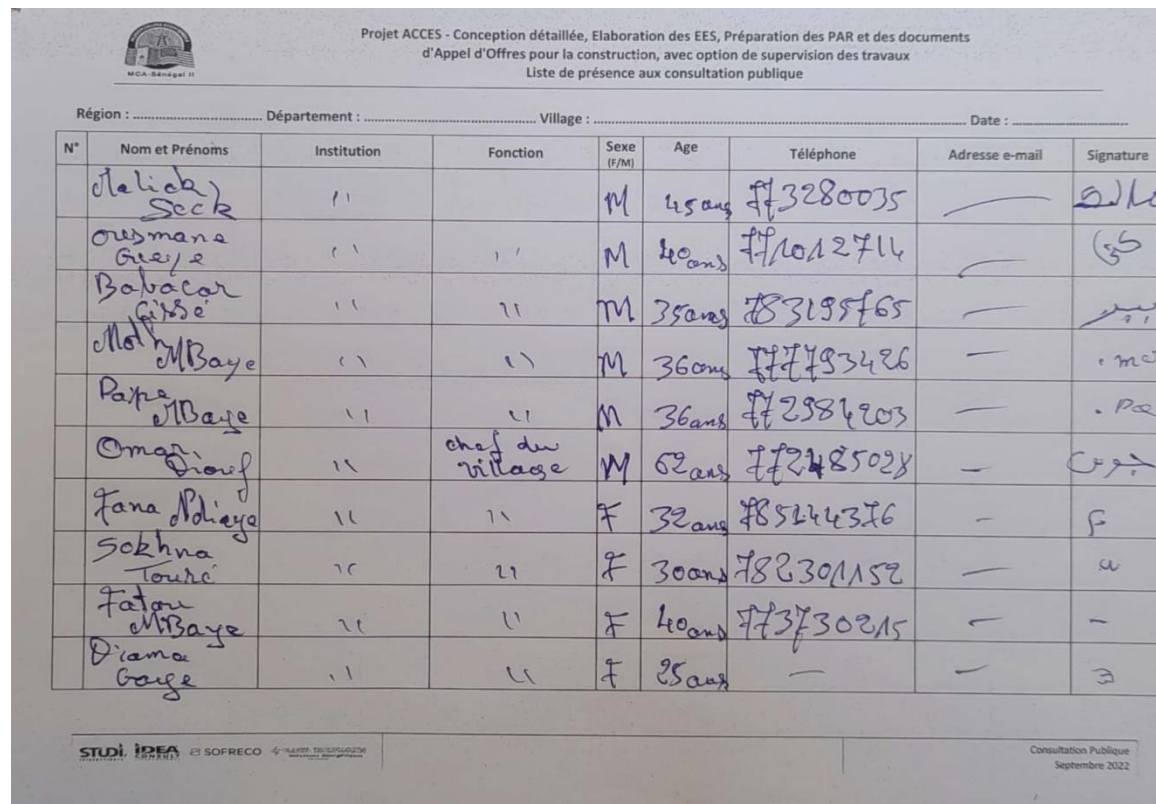 MCA-Sénégal II
Projet ACCES - Conception détaillée, Elaboration des EES, Préparation des PAR et des documents
d'Appel d'Offres pour la construction, avec option de supervision des travaux
Liste de présence aux consultation publique
Région : ................................ Département : .......................................... Village : ............................................................................................. Date : .............................
N° Nom et Prénoms Institution Fonction Sexe (F/M) Age Téléphone Adresse e-mail Signature
Malick
Seck '' M 45 ans 773280035 —
Ousmane
Gueye '' '' M 40 ans 771012714 —
Babacar
Cissé '' '' M 35 ans 783195765 —
MBaye '' '' M 36 ans 777793426 —
Pape
MBaye '' '' M 36 ans 772984203 — . Pa
Omar
Diouf '' chef du
village M 62 ans 772485028 —
Fana Ndiaye '' '' F 32 ans 785144376 — F
Sokhna
Touré '' '' F 30 ans 782301152 —
Fatou
MBaye '' '' F 40 ans 773730215 — —
Diama
Gaye '' '' F 25 ans — —
STUDI IDEA CONSULT SOFRECO
Consultation Publique
Septembre 2022